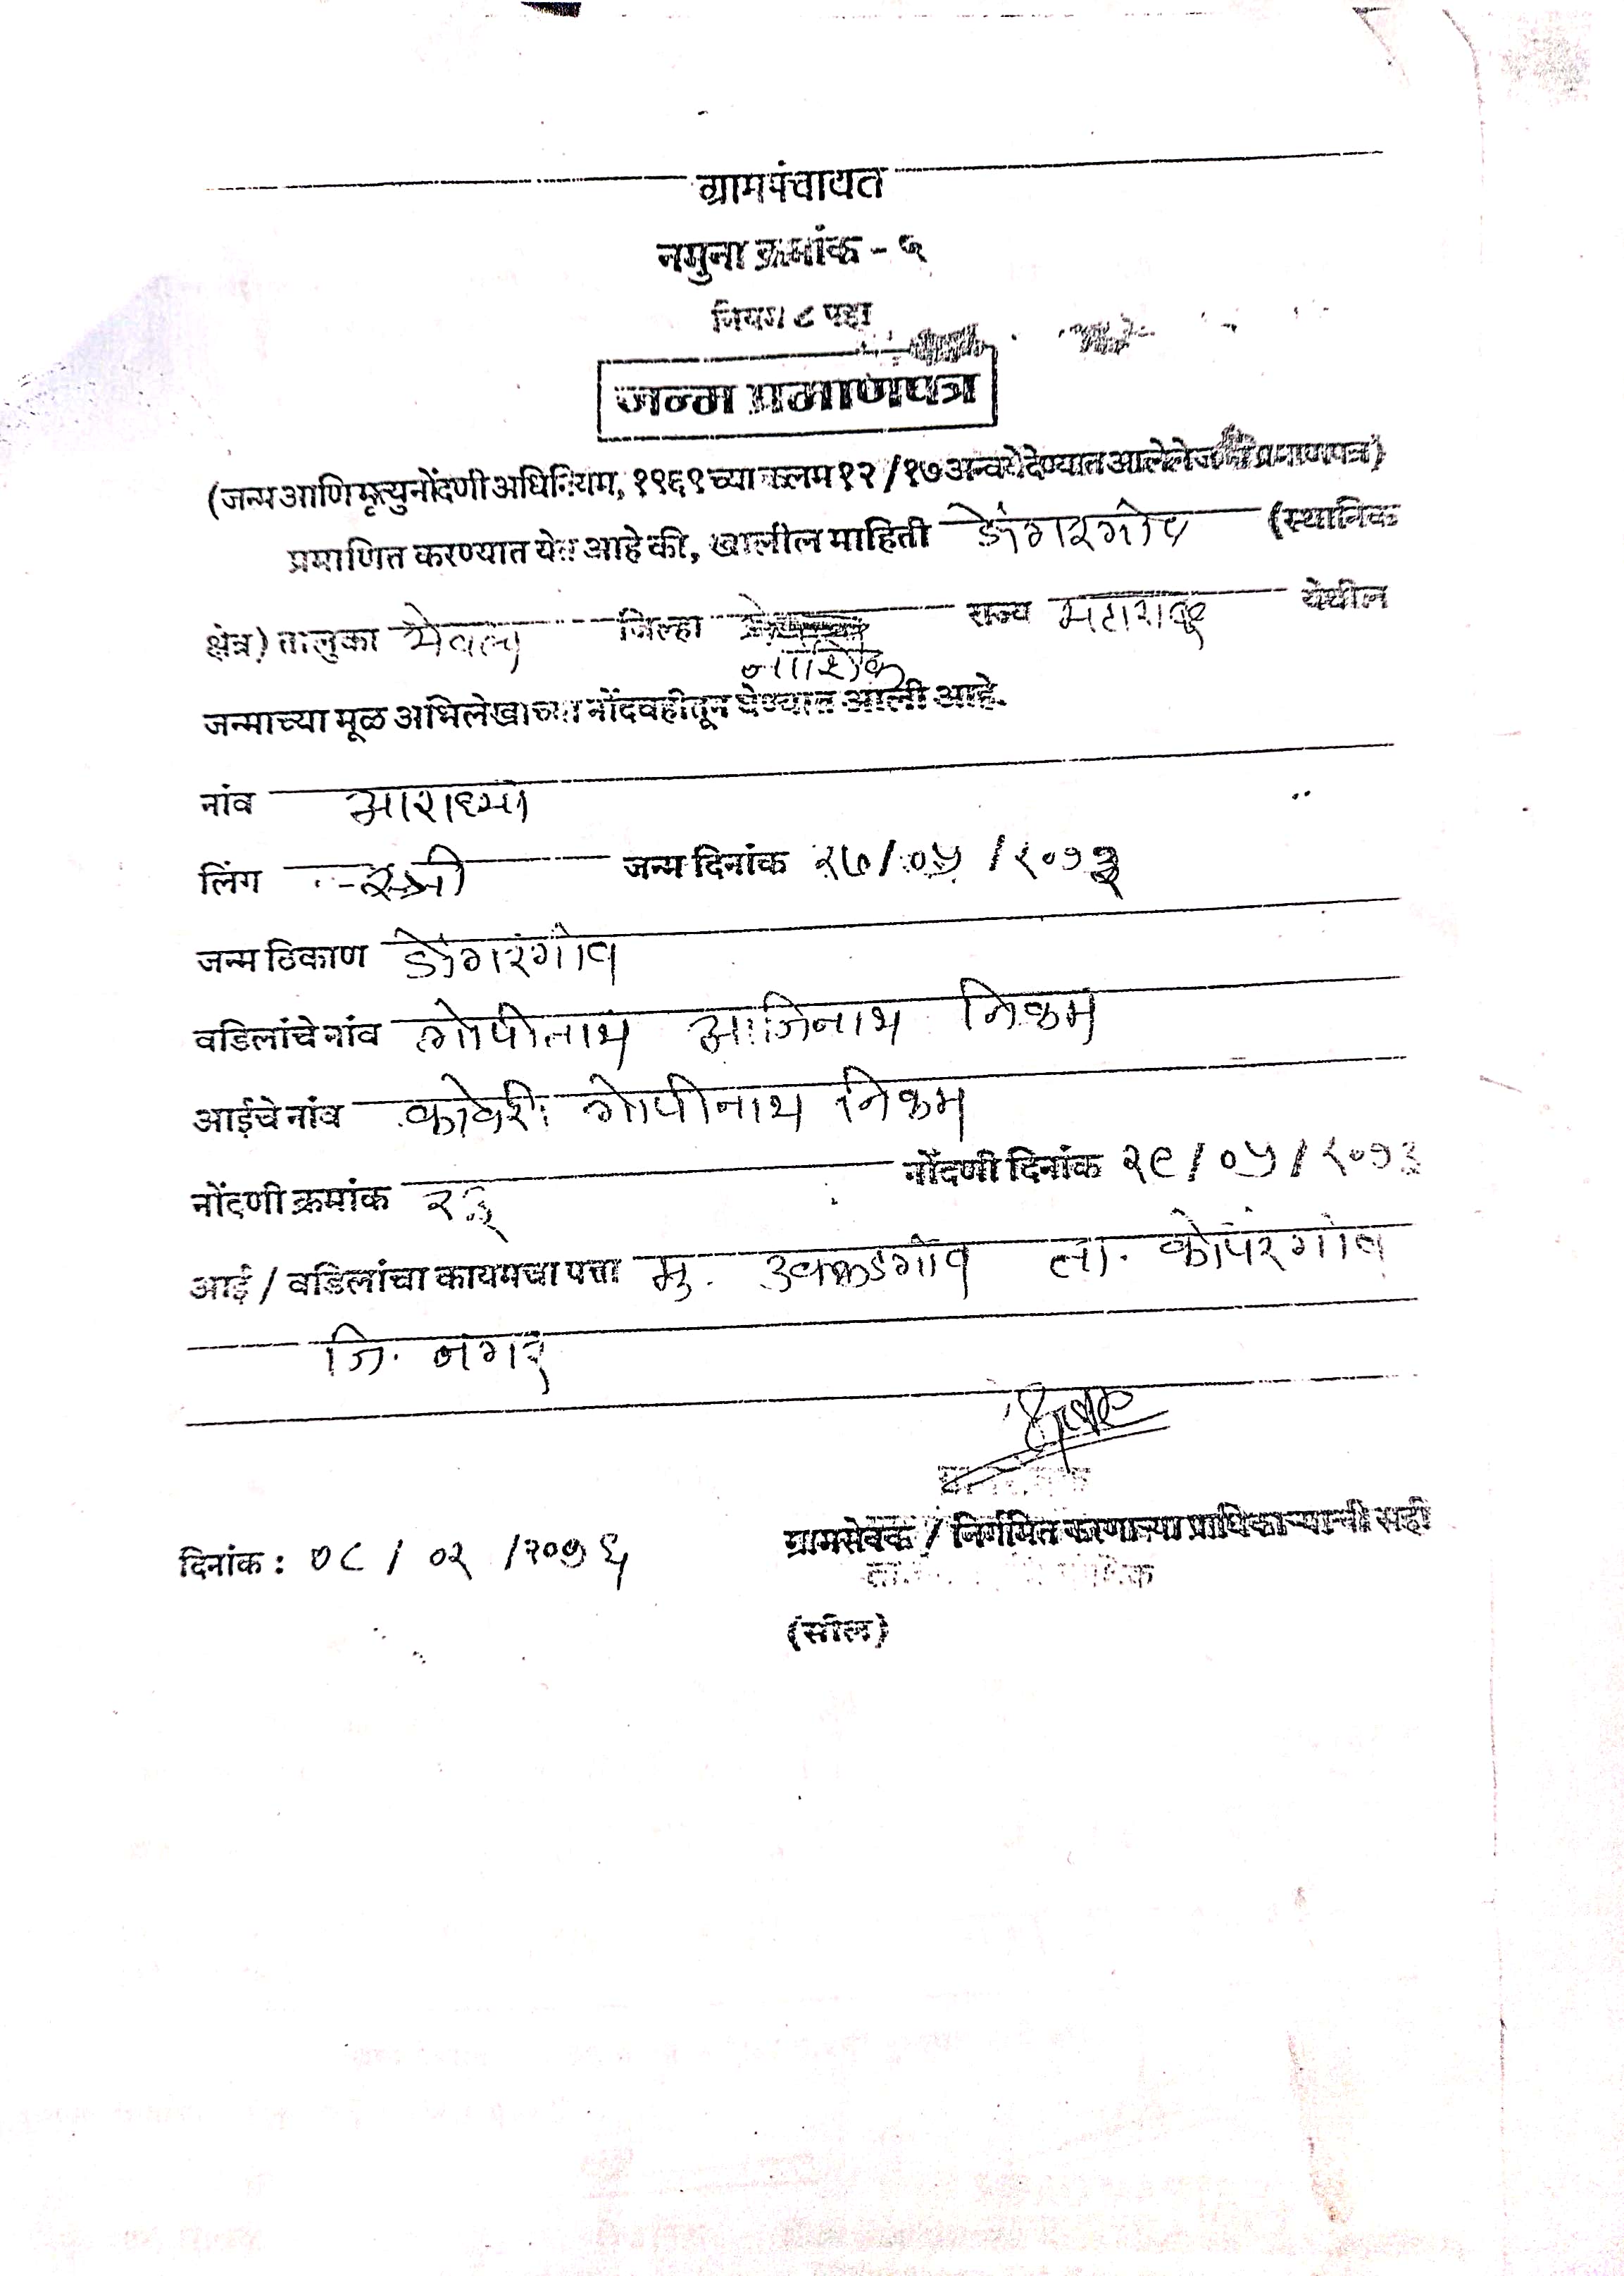 ग्रामपंचायत
नमुना क्रमांक - ५
नियम ८ पहा
जन्म प्रमाणपत्र
(जन्म आणि मृत्यु नोंदणी अधिनियम, १९६९ च्या कलम १२ / १७ अन्वये देण्यात आलेले जन्म प्रमाणपत्र)
प्रमाणित करण्यात येत आहे की, खालील माहिती डोंगरगांव (स्थानिक
क्षेत्र) तालुका येवला जिल्हा नाशिक राज्य महाराष्ट्र येथील
जन्माच्या मूळ अभिलेखाच्या नोंदवहीतून घेण्यात आली आहे.
नांव आराध्या
लिंग स्त्री जन्म दिनांक २७/०५/२०१३
जन्म ठिकाण डोंगरगांव
वडिलांचे नांव गोपीनाथ आजिनाथ निकम
आईचे नांव कावेरी गोपीनाथ निकम
नोंदणी क्रमांक नोंदणी दिनांक २९/०५/२०१३
आई / वडिलांचा कायमचा पत्ता मु. उक्कडगांव ता. कोपरगांव
जि. नगर
ग्रामसेवक / निर्गमित करणाऱ्या प्राधिकाऱ्याची सही
दिनांक : ०८/०२/२०१६
(सील)